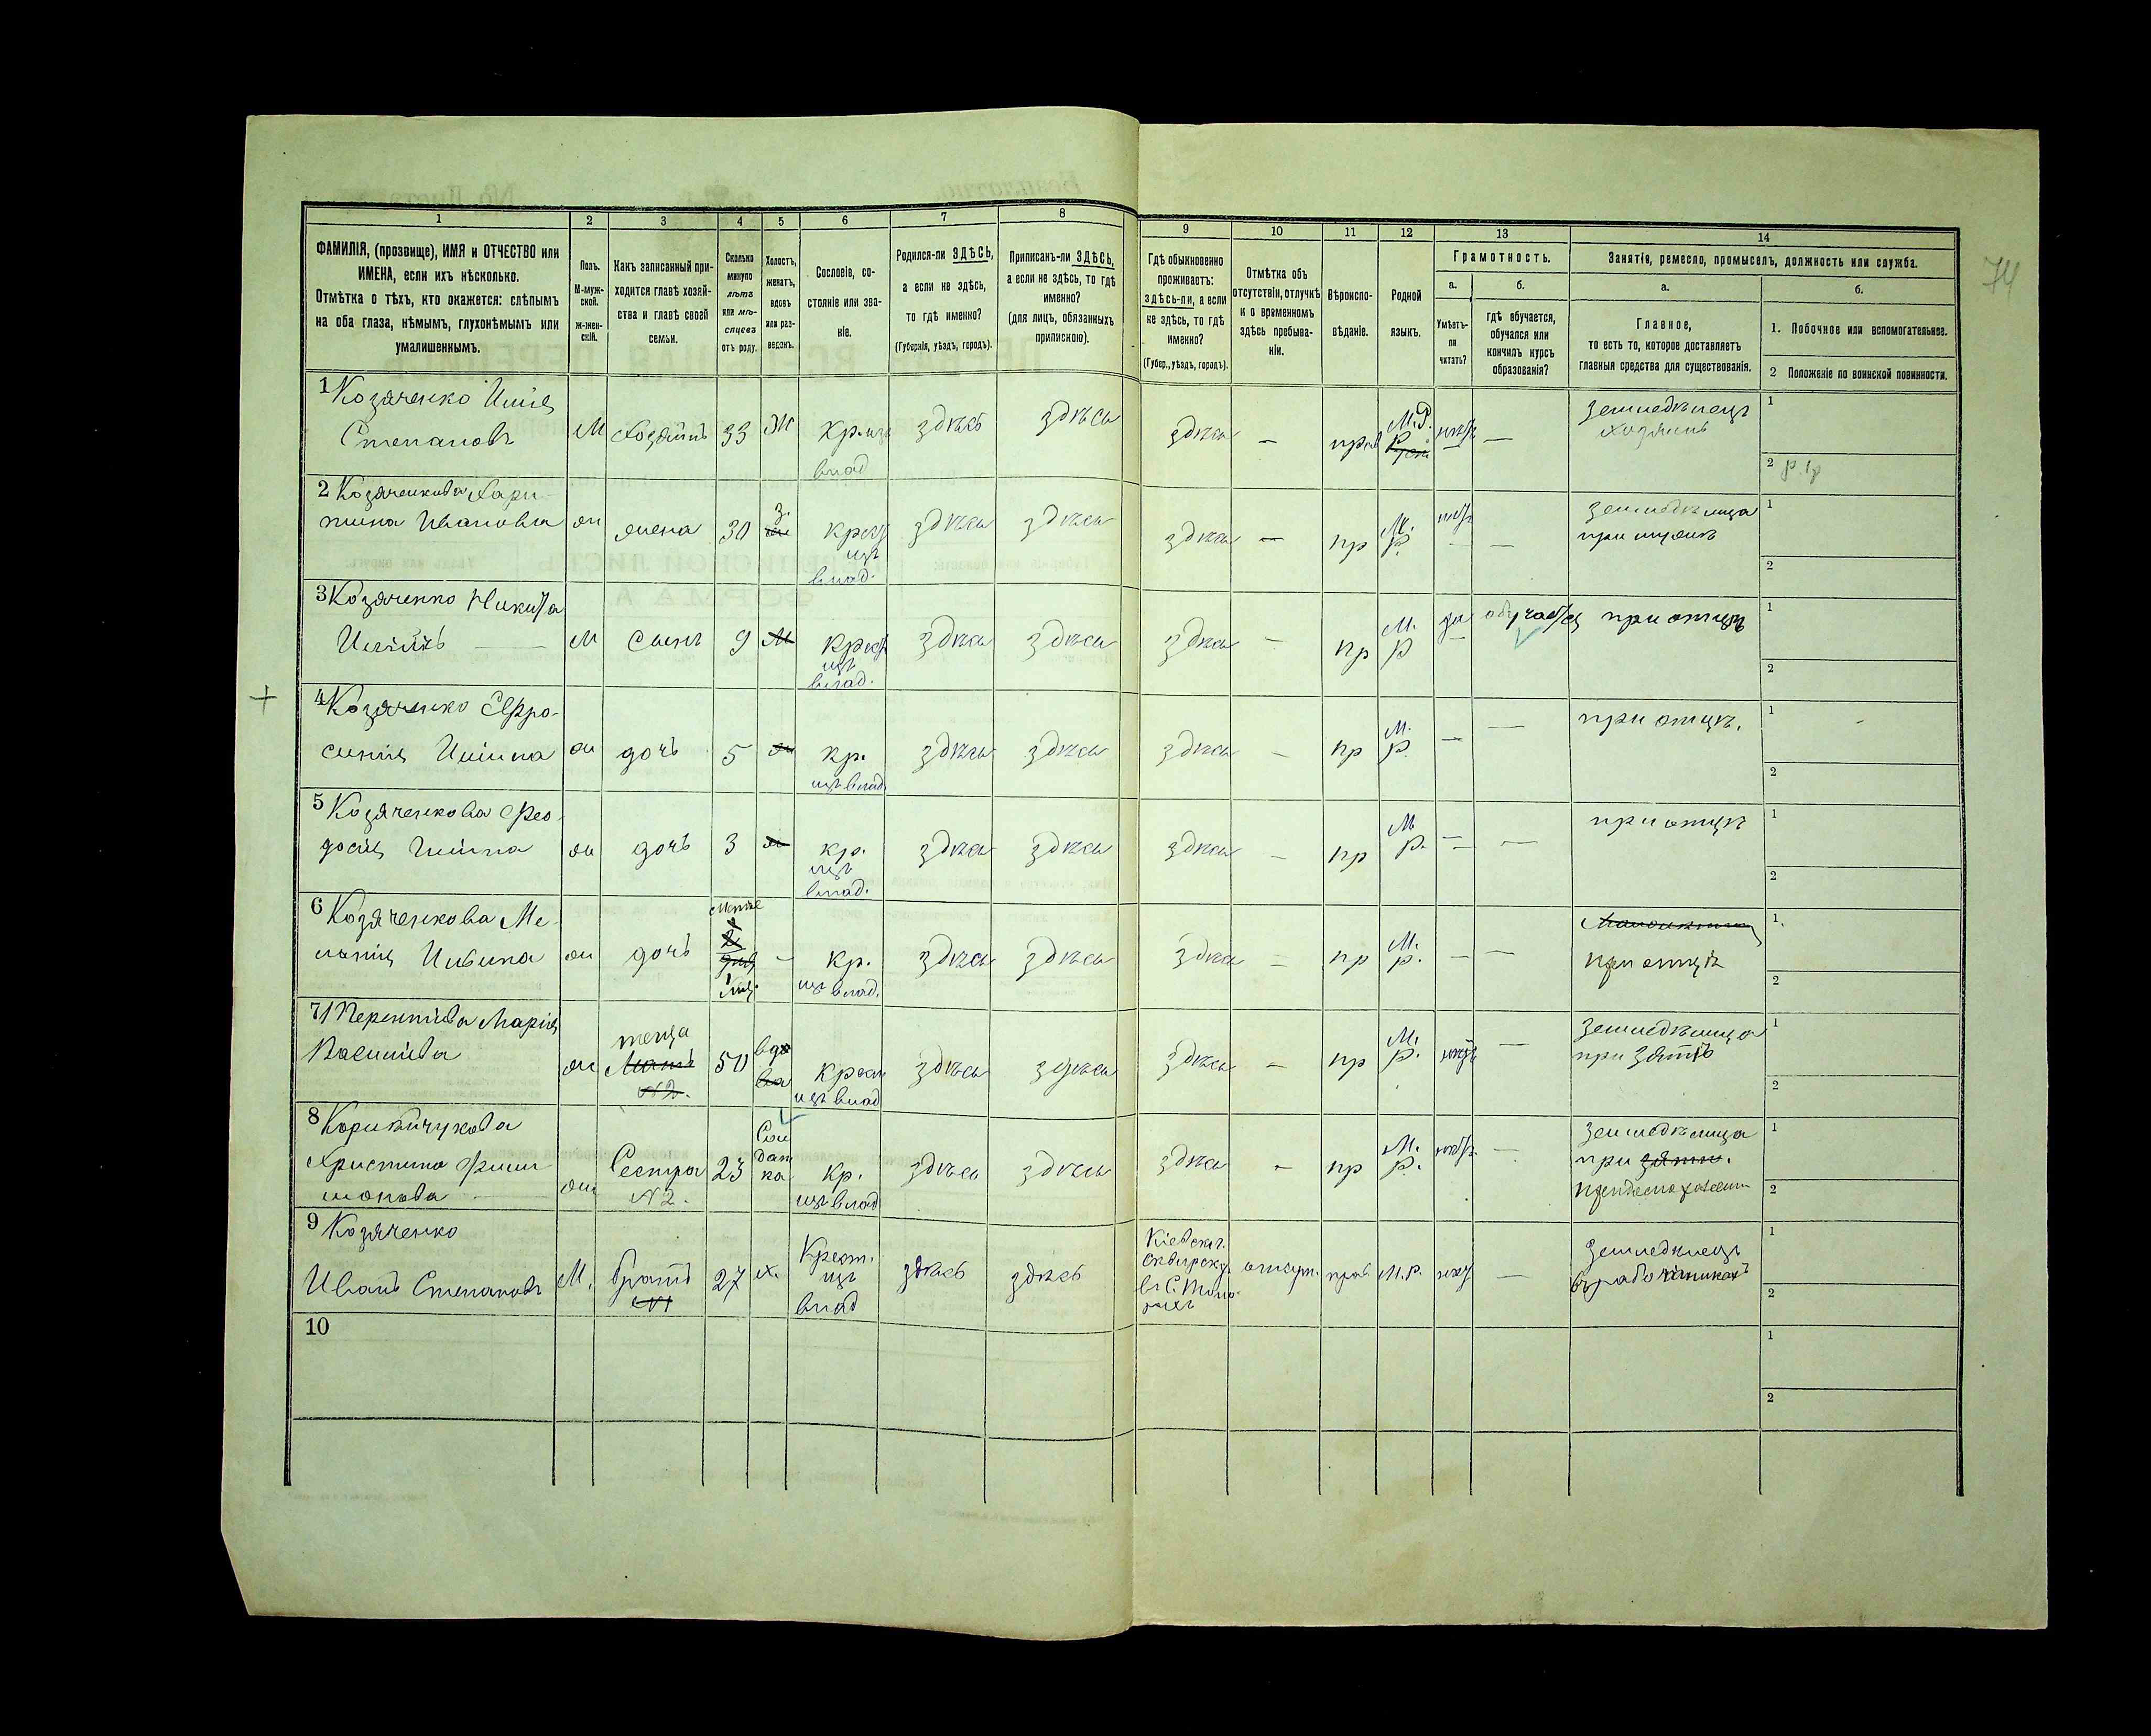 74
1 2 3 4 5 6 7 8 9 10 11 12 13 14
ФАМИЛІЯ, (прозвище), ИМЯ и ОТЧЕСТВО или
ИМЕНА, если ихъ нѣсколько.
Отмѣтка о тѣхъ, кто окажется: слѣпымъ
на оба глаза, нѣмымъ, глухонѣмымъ или
умалишеннымъ.
Полъ.
М-муж-
ской.
ж-жен-
скій.
Какъ записанный при-
ходится главѣ хозяй-
ства и главѣ своей
семьи.
Сколько
минуло
лѣтъ
или мѣ-
сяцевъ
отъ роду.
Холостъ,
женатъ,
вдовъ
или раз-
веденъ.
Сословіе, со-
стояніе или зва-
ніе.
Родился-ли ЗДѢСЬ,
а если не здѣсь,
то гдѣ именно?
(Губернія, уѣздъ, городъ).
Приписанъ-ли ЗДѢСЬ,
а если не здѣсь, то гдѣ
именно?
(для лицъ, обязанныхъ
припискою).
Гдѣ обыкновенно
проживаетъ:
здѣсь-ли, а если
не здѣсь, то гдѣ
именно?
(Губер., уѣздъ, городъ).
Отмѣтка объ
отсутствіи, отлучкѣ
и о временномъ
здѣсь пребыва-
ніи.
Вѣроиспо-
вѣданіе.
Родной
языкъ.
Грамотность.
а.
Умѣетъ-
ли
читать?
б.
гдѣ обучается,
обучался или
кончилъ курсъ
образованія?
Занятія, ремесло, промыселъ, должность или служба.
а.
Главное,
то есть то, которое доставляетъ
главныя средства для существованія.
б.
1. Побочное или вспомогательное.
2 Положеніе по воинской повинности.
1 Козяченко Илія
Степановъ М хозяинъ 33 Ж Кр. изъ влад здѣсь здѣсь здѣсь — прав М.Р. нѣтъ — земледѣлецъ хозяинъ 1
2
2 Козяченкова Хари-
тина Иванова ж жена 30 з. Крест изъ влад. здѣсь здѣсь здѣсь — пр М. Р. нѣтъ — земледѣлица при мужѣ 1
2
3 Козяченко Никита
Ильинъ — М сынъ 9 М Крест изъ влад. здѣсь здѣсь здѣсь — пр М. Р да обучается при отцѣ 1
2
4 Козяченко Ефро-
синія Иліина ж дочь 5 ж кр. изъ влад здѣсь здѣсь здѣсь — пр М. р. — — при отцѣ. 1
2
5 Козяченкова Фео-
досія Иліина ж дочь 3 ж кр. изъ влад. здѣсь здѣсь здѣсь — пр М р. — — при отцѣ 1
2
6 Козяченкова Ме-
ланія Иліина ж дочь 1 мѣс. — кр. изъ влад. здѣсь здѣсь здѣсь — пр М. р. — — при отцѣ 1.
2
7 Марія
Василіева ж теща Мать N2. 50 вдова Крест изъ влад здѣсь здѣсь здѣсь — пр М. р. нѣтъ — Земледѣлица при зятѣ 1
2
8
Христина
ж Сестра N2. 23 Солдатка кр. изъ влад здѣсь здѣсь здѣсь — пр М. р. нѣтъ — Земледѣлица при зятѣ. 1
2
9 Козяченко
Иванъ Степановъ М. братъ N1 27 х. Крест. изъ влад здѣсь здѣсь Кіевской. Сквирску. в с. отсут. прав. М.Р. нѣту — Земледѣлецъ в работникахъ 1
2
10 1
2